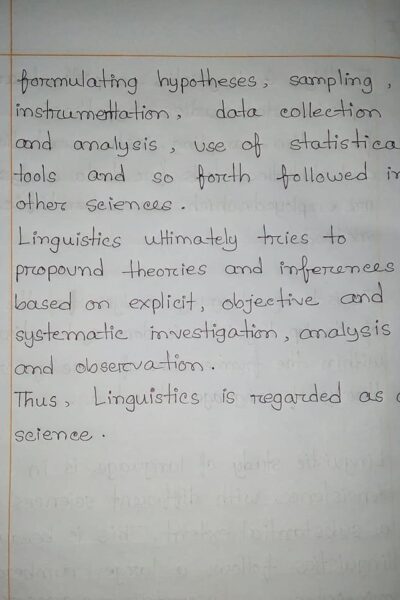 formulating hypotheses, sampling,
instrumentation, data collection
and analysis, use of statistica
tools and so forth followed in
other sciences.
Linguistics ultimately tries to
propound theories and inferences
based on explicit, objective and
systematic investigation, analysis
and observation.
Thus, Linguistics is regarded as a
science.